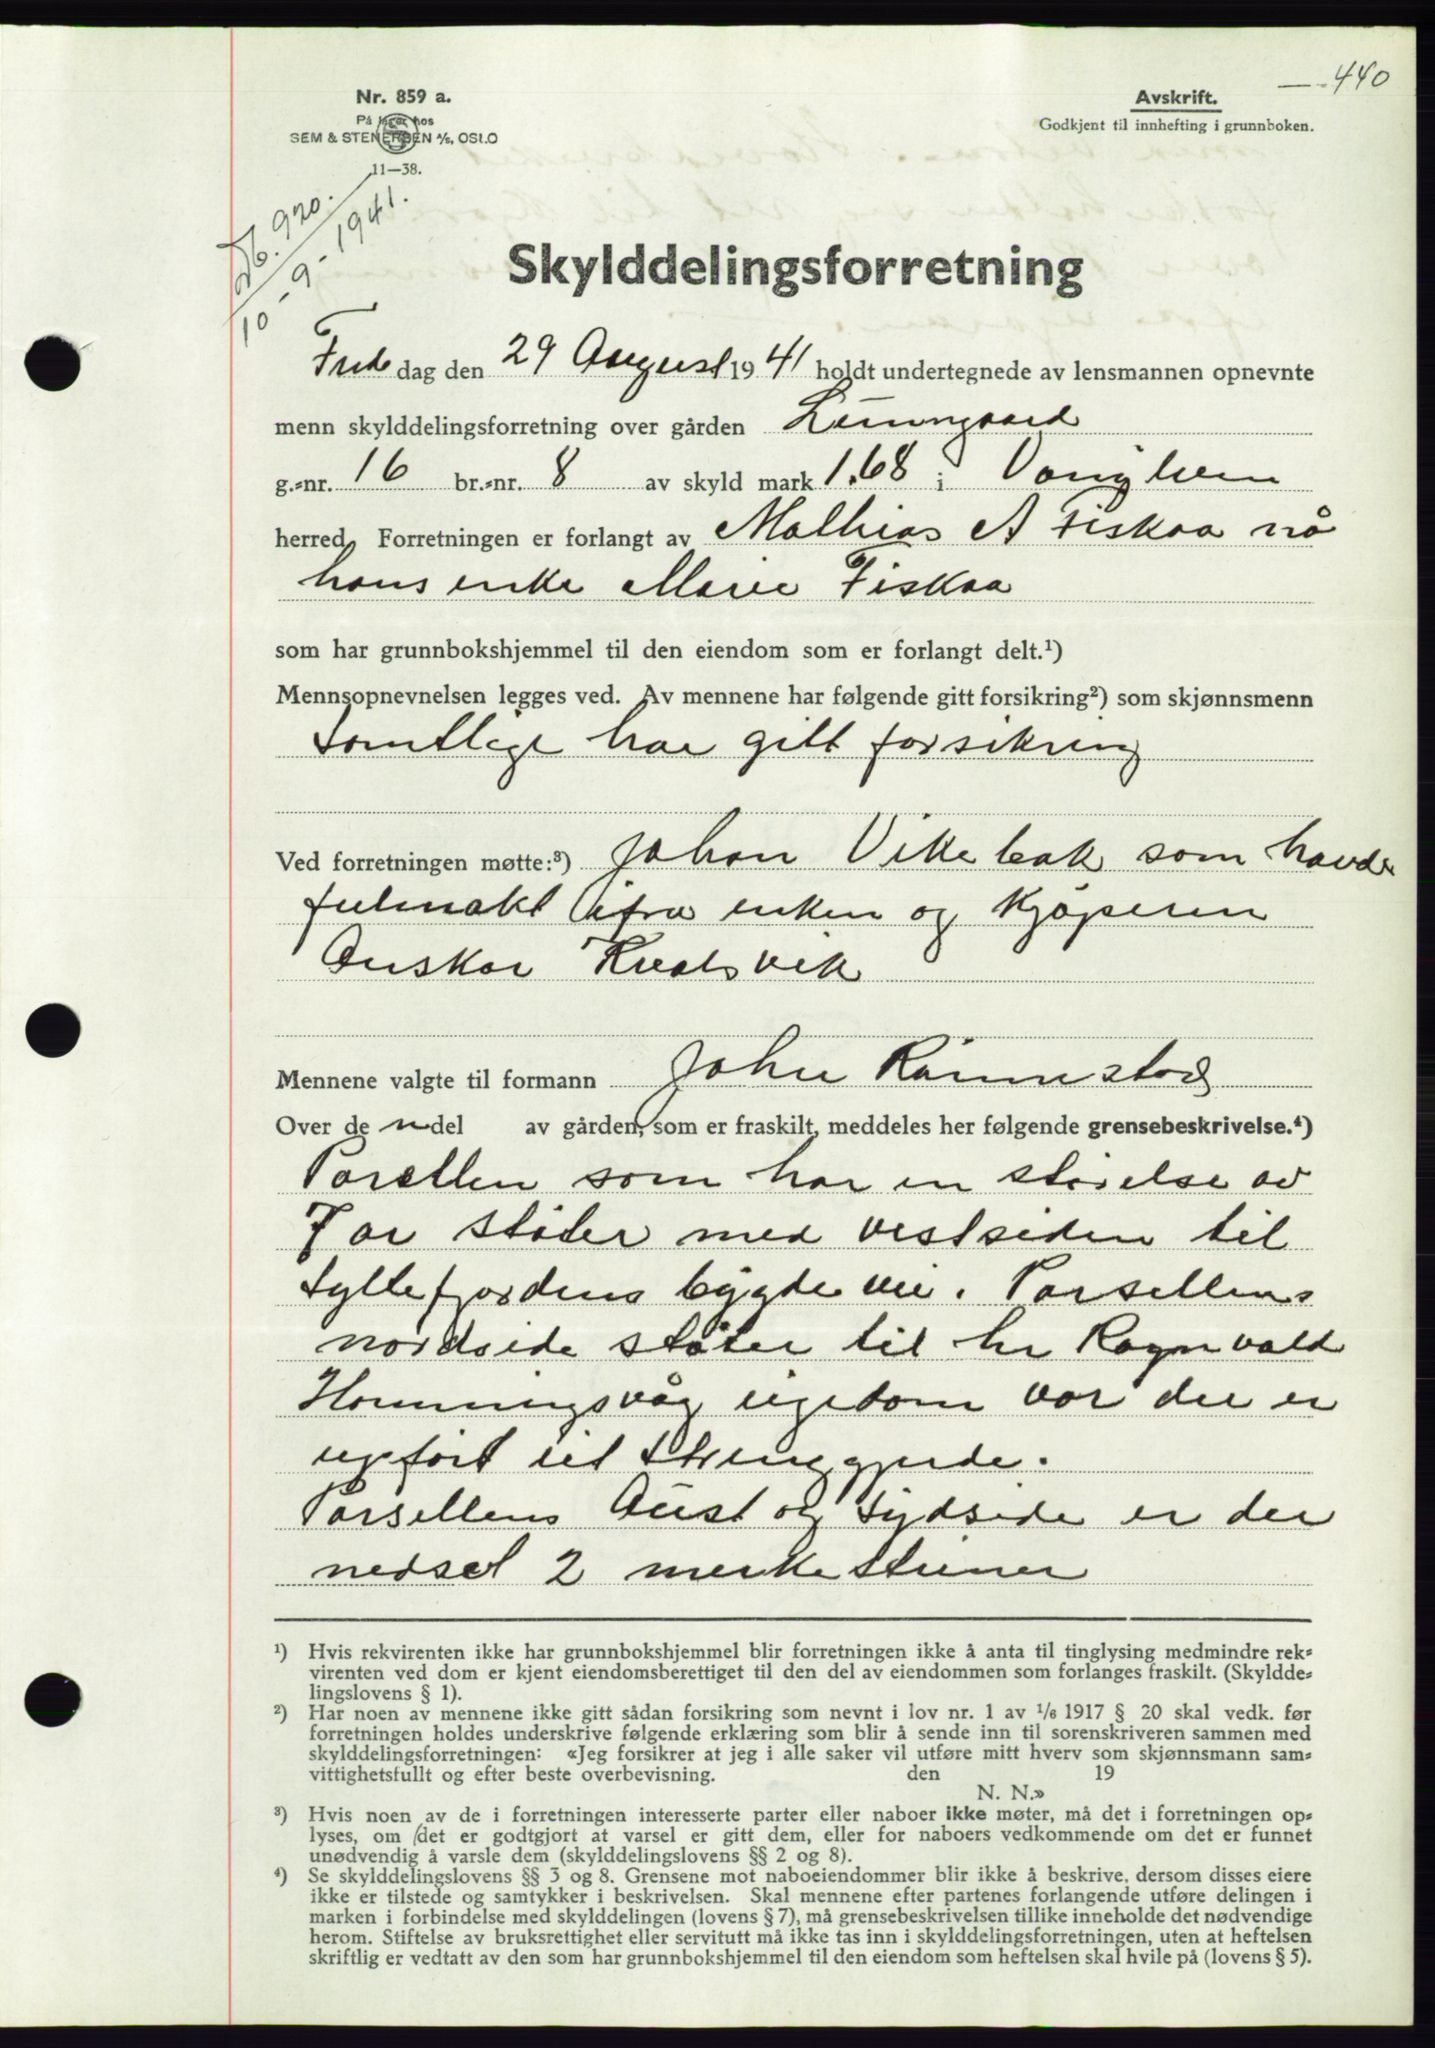 440
Nr. 859 a.
På lager hos
SEM & STENERSEN A/S, OSLO
11—38.
Avskrift.
Godkjent til innhefting i grunnboken.
920.
10-9-1941.
Skylddelingsforretning
Fredag den 29 August 1941 holdt undertegnede av lensmannen opnevnte
menn skylddelingsforretning over gården
g.=nr. 16 br.=nr. 8 av skyld mark 1.68 i
herred. Forretningen er forlangt av Mathias A Fiskaa nå
hans enke Marie Fiskaa
som har grunnbokshjemmel til den eiendom som er forlangt delt.¹)
Mennsopnevnelsen legges ved. Av mennene har følgende gitt forsikring²) som skjønnsmenn
Samtlige har gitt forsikring
Ved forretningen møtte:³) Johan som havde
fulmakt ifra enken og Kjøperen
Anskar Kvalsvik
Mennene valgte til formann John
Over de n del av gården, som er fraskilt, meddeles her følgende grensebeskrivelse.⁴)
Parsellen som har en størelse av
7 ar støter med vestsiden til
Syltefjordens bygdevei. Parsellens
nordside støter til hr Ragnvald
Honningsvåg eigedom vor der er
upført eit strenggjerde.
Parsellens Aust og sydside er der
nedset 2 merkesteiner
¹) Hvis rekvirenten ikke har grunnbokshjemmel blir forretningen ikke å anta til tinglysing medmindre rek=
virenten ved dom er kjent eiendomsberettiget til den del av eiendommen som forlanges fraskilt. (Skyldde=
lingslovens § 1).
²) Har noen av mennene ikke gitt sådan forsikring som nevnt i lov nr. 1 av ¹/₆ 1917 § 20 skal vedk. før
forretningen holdes underskrive følgende erklæring som blir å sende inn til sorenskriveren sammen med
skylddelingsforretningen: «Jeg forsikrer at jeg i alle saker vil utføre mitt hverv som skjønnsmann sam=
vittighetsfullt og efter beste overbevisning. den 19
N. N.»
³) Hvis noen av de i forretningen interesserte parter eller naboer ikke møter, må det i forretningen op=
lyses, om det er godtgjort at varsel er gitt dem, eller for naboers vedkommende om det er funnet
unødvendig å varsle dem (skylddelingslovens §§ 2 og 8).
⁴) Se skylddelingslovens §§ 3 og 8. Grensene mot naboeiendommer blir ikke å beskrive, dersom disses eiere
ikke er tilstede og samtykker i beskrivelsen. Skal mennene efter partenes forlangende utføre delingen i
marken i forbindelse med skylddelingen (lovens § 7), må grensebeskrivelsen tillike inneholde det nødvendige
herom. Stiftelse av bruksrettighet eller servitutt må ikke tas inn i skylddelingsforretningen, uten at heftelsen
skriftlig er vedtatt av den som har grunnbokshjemmel til den eiendom som heftelsen skal hvile på (lovens § 5).